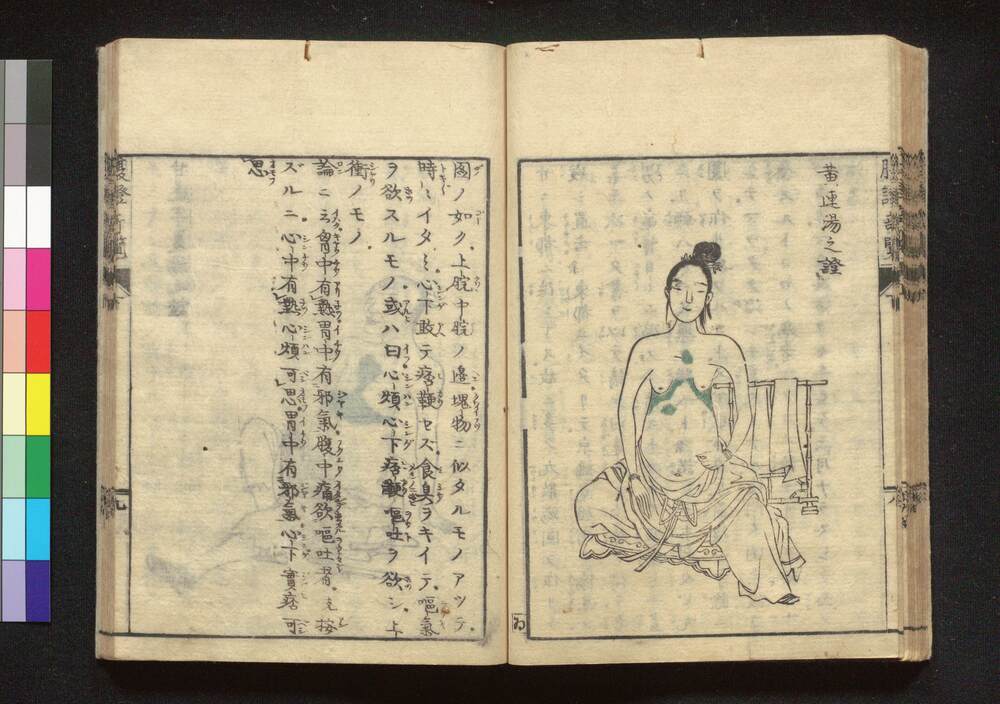 黄連湯之證
ゐ
圖ノ如ク上脘中脘ノ邉塊物ニ似タルモノアッテ
時々イタミ心下敢テ痞鞕セス食臭ヲキイテ嘔氣
ヲ欲スルモノ或ハ曰心煩心下痞鞕嘔吐ヲ欲シ上
衝ノモノ
論ニ云胷中有熱胃中有邪氣腹中痛欲嘔吐者云按
ズルニ心中有熱心煩可思胃中有邪氣心下實痞可
思
腹證奇覽
九